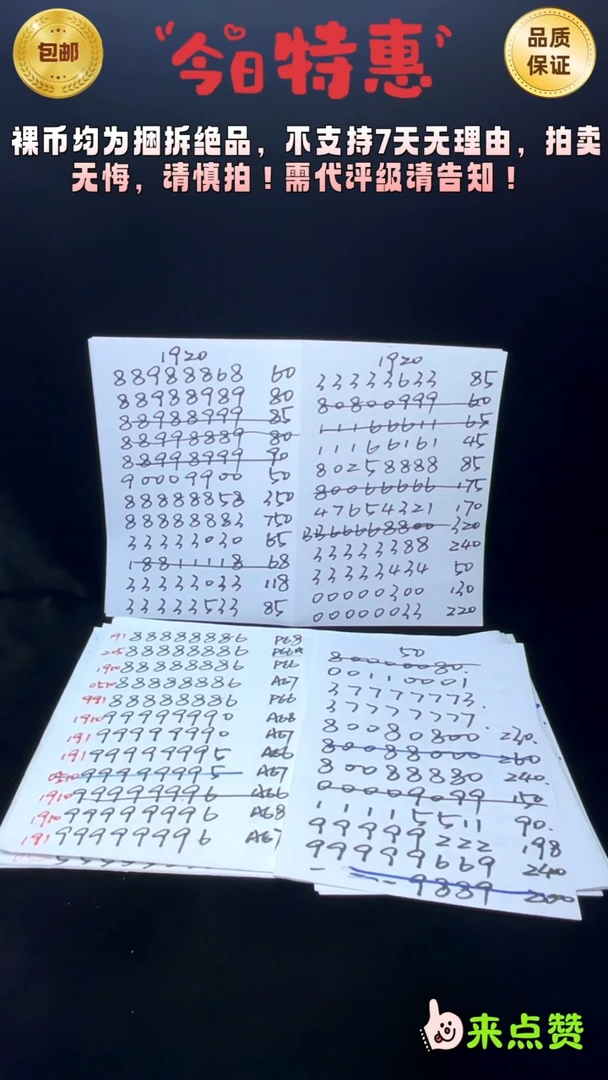 包邮
"今日特惠"
品质
保证
裸币均为捆拆绝品，不支持7天无理由，拍卖
无悔，请慎拍！需代评级请告知！
1920
88988868 60
88988989 80
88988999 85
88998889 80
88998999 90
90009900 50
88888858 350
88888883 750
33333030 65
18811118 68
33333033 118
33333533 85
1920
33333633 85
80800999 60
11166611 65
11166161 45
80258888 85
80066666 175
47654321 170
3366668800 320
33333388 240
33333434 50
00000300 130
00000033 220
191 88888886 P68
205 88888886
1910 88888886 P66
0510 88888886 A67
991 88888886 P66
1910 99999990 A68
191 99999990 A67
191 99999995 A66
0510 99999995 A67
1910 99999996 A66
1910 99999996 A68
191 99999996 A67
50
80000080
00110001
37777773.
37777777.
80080800 230.
80088000 260
80088880 240.
00009099 150
11115511 90.
99999222 198
99999669 240
9889 200
来点赞